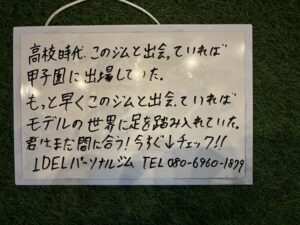 高校時代、このジムと出会っていれば
甲子園に出場していた。
もっと早くこのジムと出会っていれば
モデルの世界に足を踏み入れていた。
君はまだ間に合う!今すぐ↓チェック!!
IDELパーソナルジム TEL 080-6960-1879